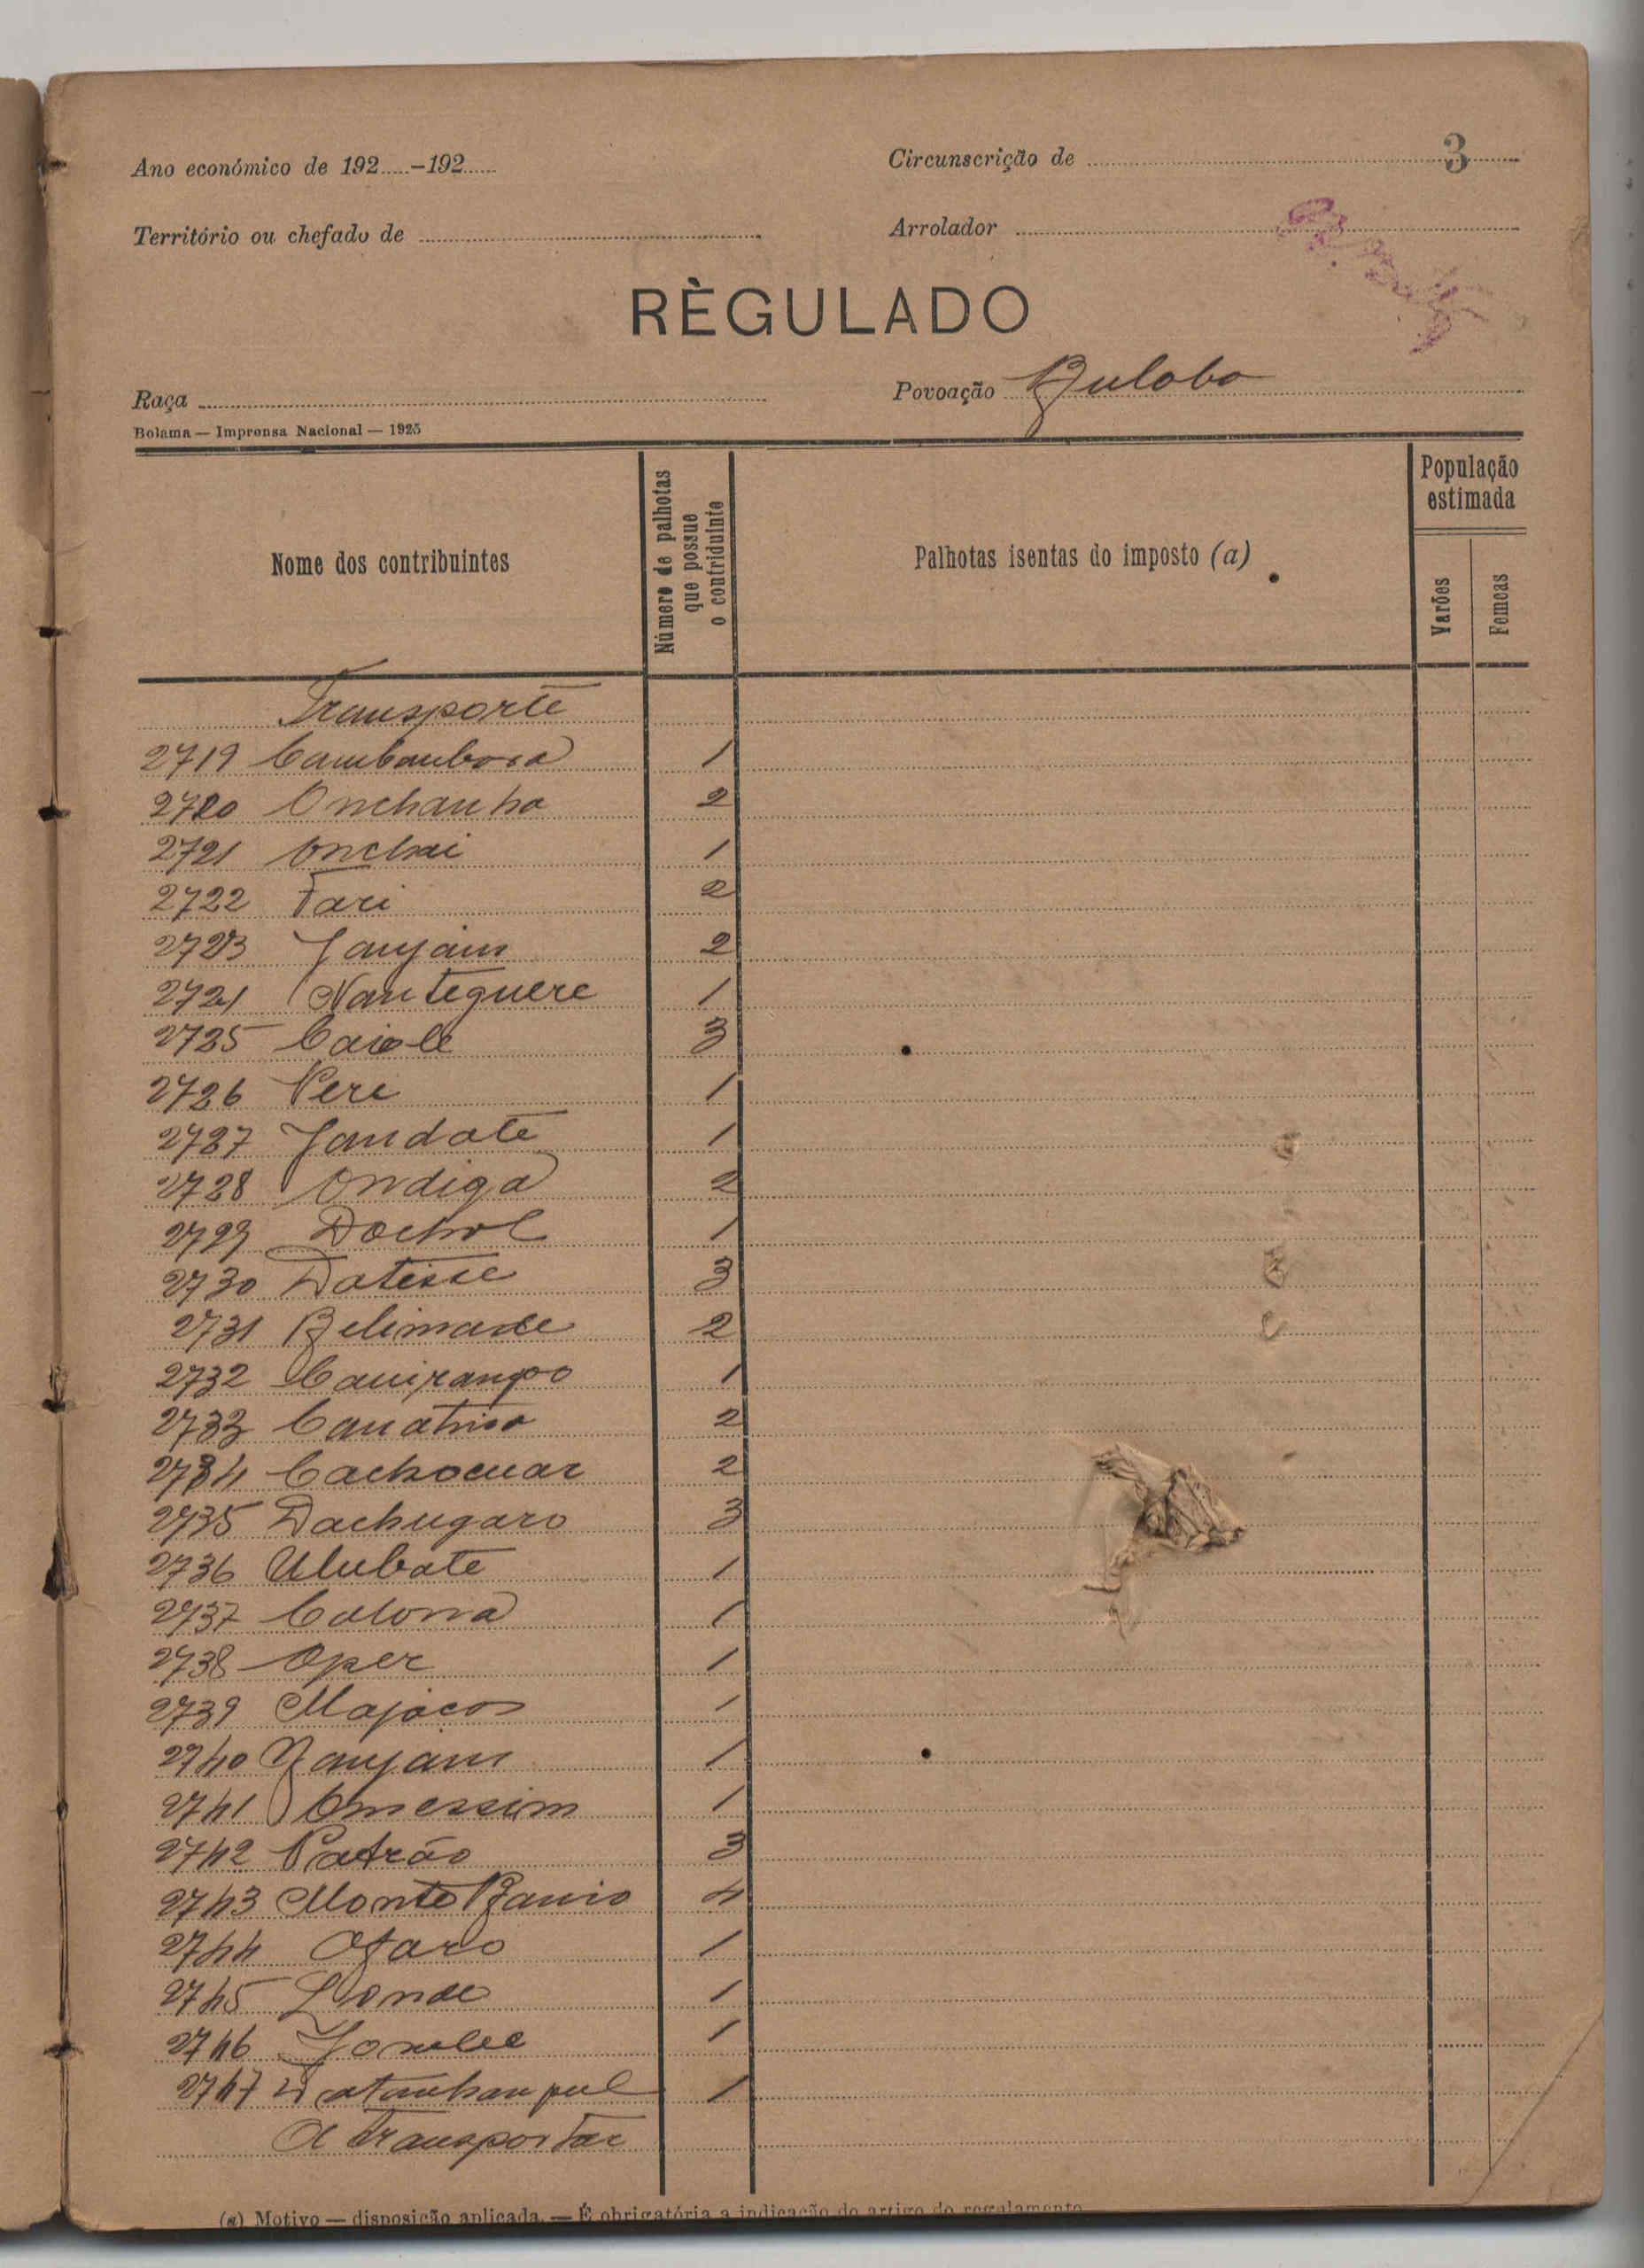 3
Ano económico de 192.....-192...... Circunscrição de
Território ou chefado de Arrolador
RÈGULADO
Raça Povoação Bulobo
Bolama — Imprensa Nacional — 1925
Nome dos contribuintes
Número de palhotas que possue o contriduinte
Palhotas isentas do imposto (a)
População estimada
Varões
Femeas
Transporte
2719 Cambambosa 1
2720 Onchanho 2
2721 Onchai 1
2722 Fari 2
2723 Janjam 2
2724 Nanteguere 1
2725 Caiole 3
2726 Peri 1
2727 Jandate 1
2728 Ondiga 2
2729 Dochol 1
2730 Datisse 3
2731 Belimade 2
2732 1
2733 2
2734 Cachocuar 2
2735 Dachugaro 3
2736 Ulubate 1
2737 Calona 1
2738 Oper 1
2739 Majacos 1
2740 Janjam 1
2741 Omessim 1
2742 Patrão 3
2743 Monte Banio 4
2744 Ofaro 1
2745 Londe 1
2746 1
2747 Datanhanpul 1
A transportar
(a) Motivo — disposição aplicada. — É obrigatória a indicação do artigo do regulamento